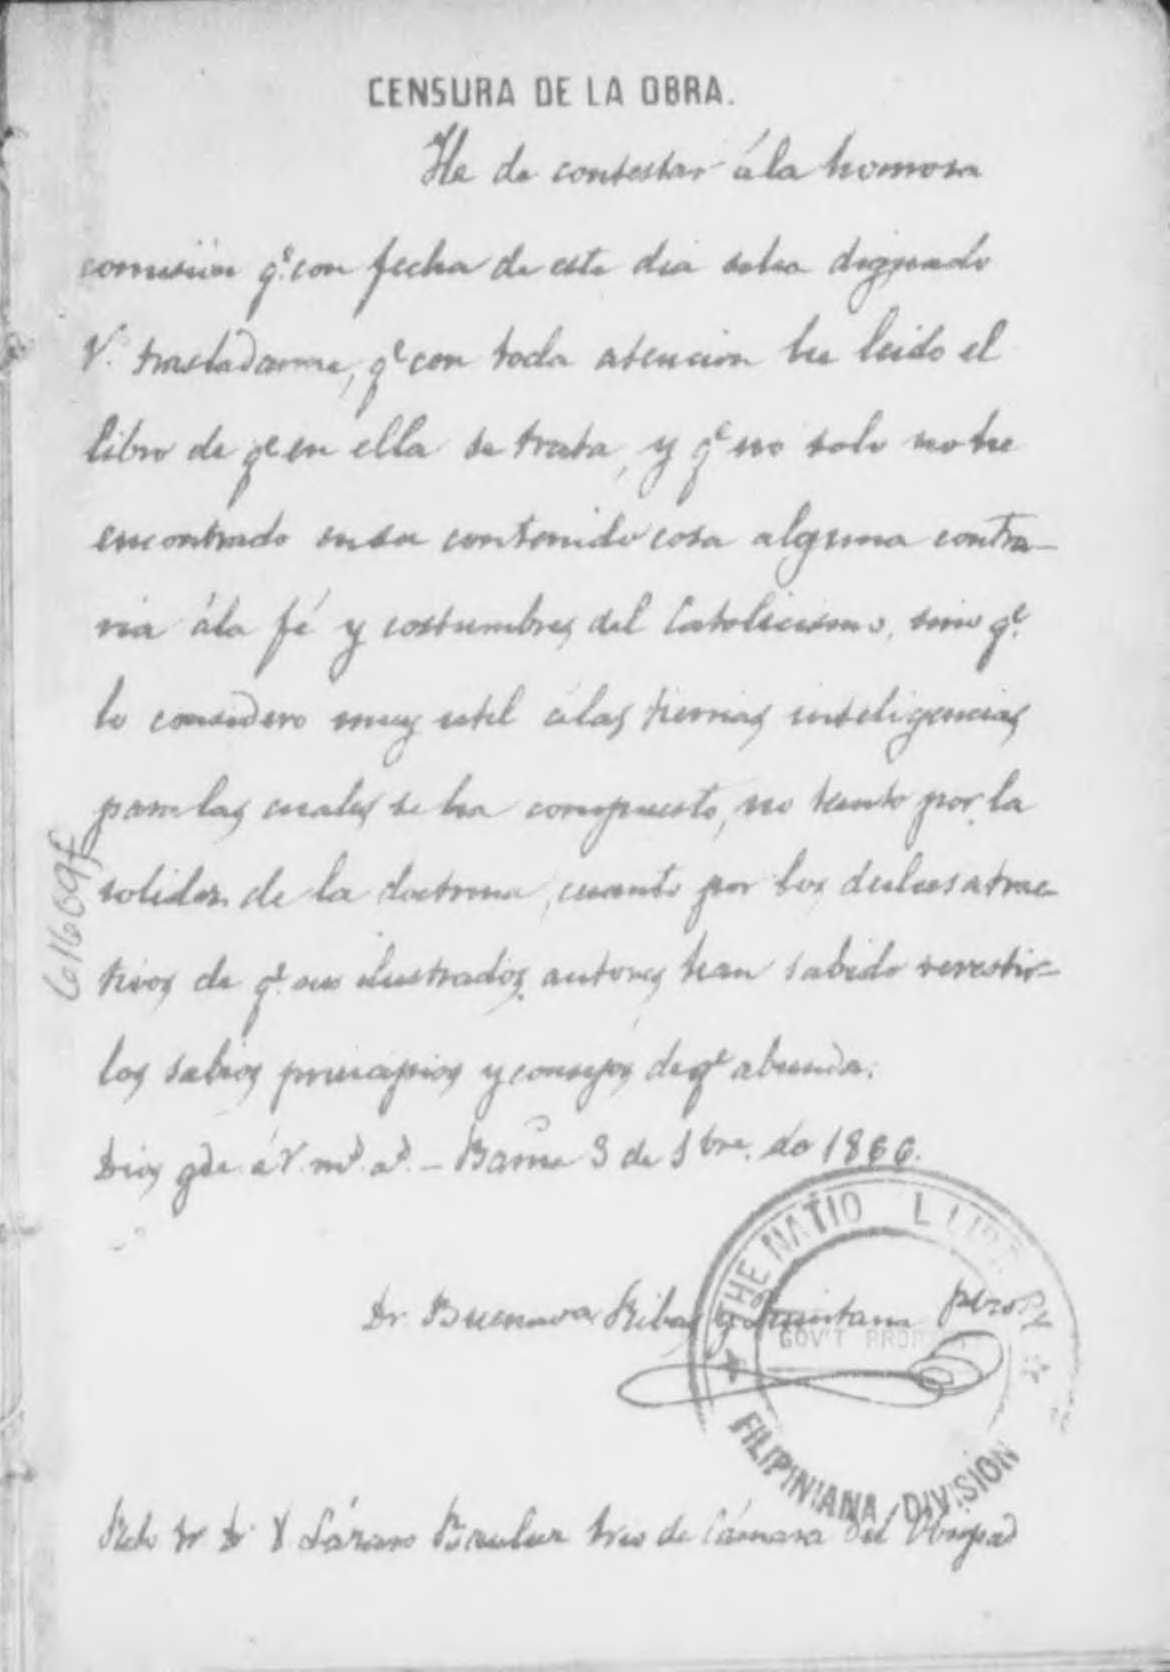 CENSURA DE LA OBRA.
He de contestar á la honrosa
comisión q.e con fecha de este dia se ha dignado
V. trasladarme, q.e con toda atencion he leido el
libro de q.e en ella se trata, y q.e no solo no he
encontrado en su contenido cosa alguna contra-
ria á la fé y costumbres del Catolicismo, sino q.e
lo considero muy util á las tiernas inteligencias
para las cuales se ha compuesto, no tanto por la
solidez de la doctrina, cuanto por los dulces atrac-
tivos de q.e sus ilustrados autores han sabido revestir
los sabios principios y consejos de q.e abunda.
Dios gde. á V. m.s a.s - Barna 3 de 9bre. de 1866.
Dr. Buenava Ribas y Quintana pbro
THE NATIO L LIBR RY
GOV'T PROP
FILIPINIANA DIVISION
Rdo Dr D. Lázaro Bauluz Srio de Cámara del Obispad
61609f